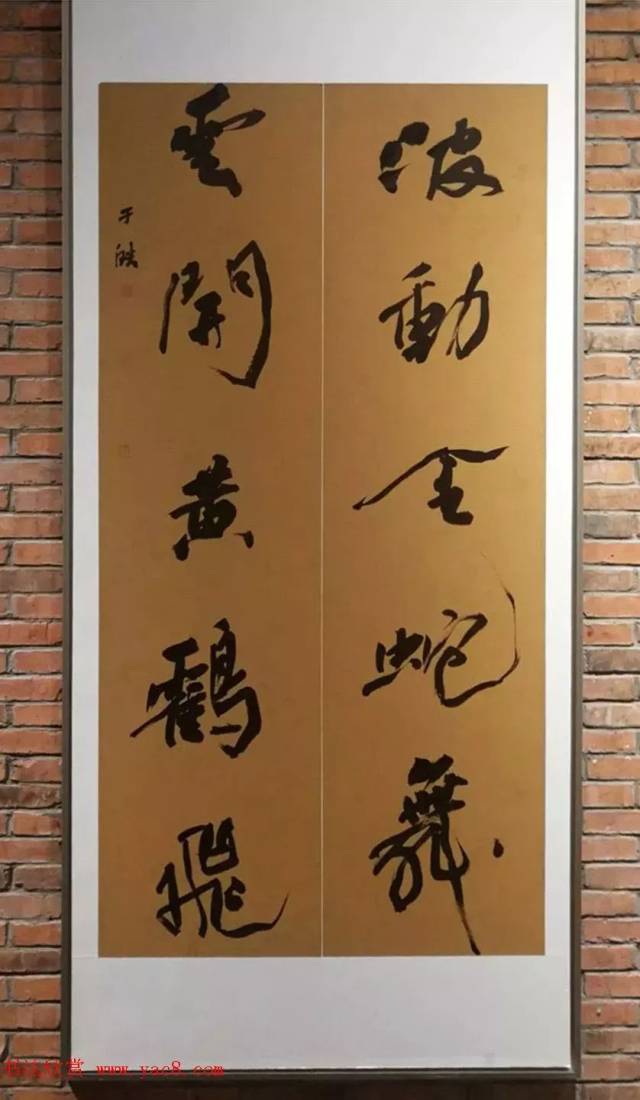 波動金蛇舞
雲開黃鶴飛
于
书法欣赏 www.yac8.com